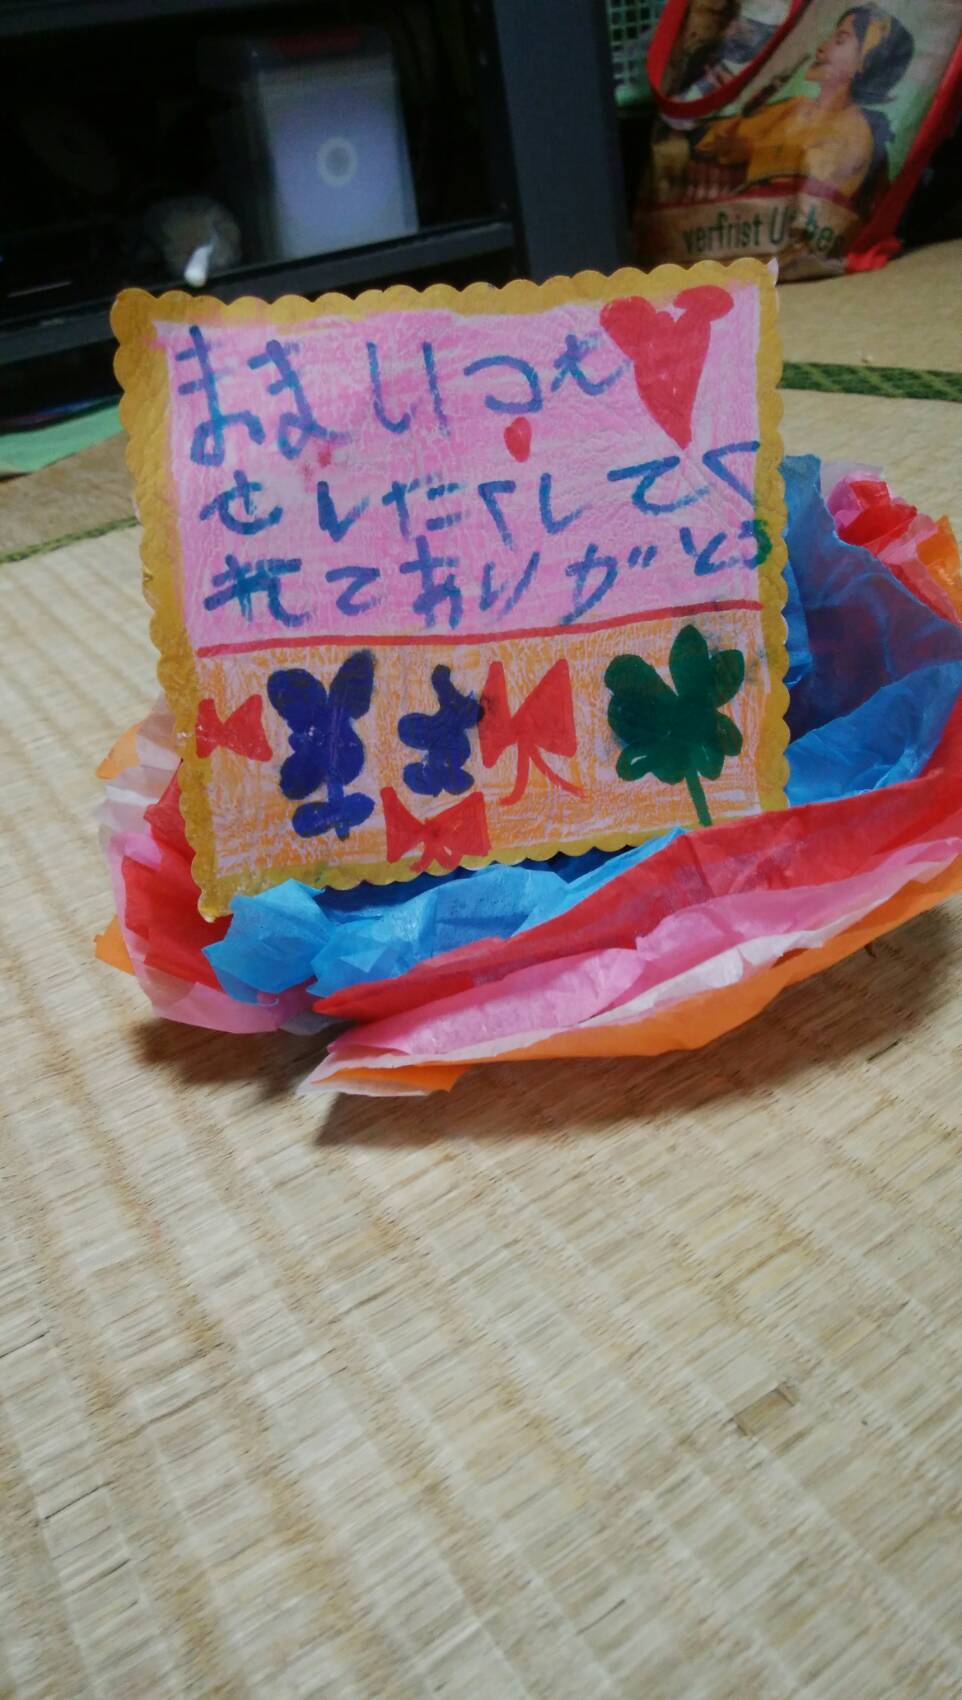 verfrist U
ままいつも
せしたくしてく
れてありがとう